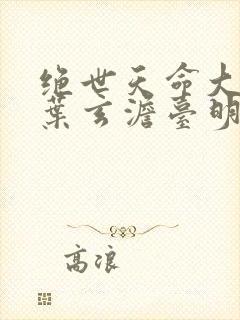 绝世天命大
葉玄澹臺明
高浪